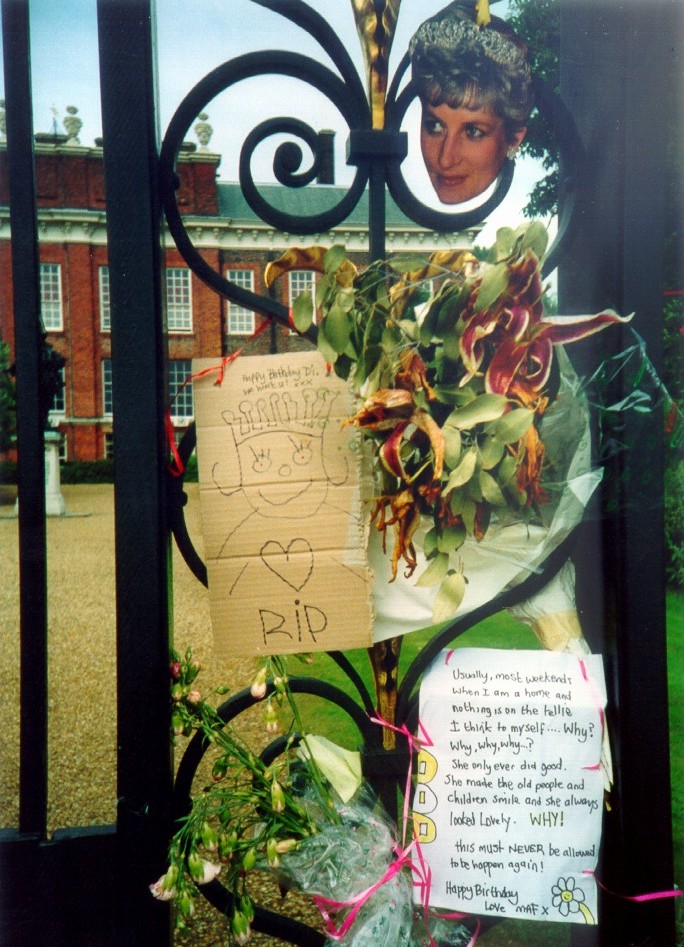 Happy Birthday Di.
we love u! xxx
RIP
Usually, most weekends
when I am a home and
nothing is on the tellie
I think to myself.... Why?
Why, why, why...?
She only ever did good.
She made the old people and
children smile and she always
looked lovely. WHY!
this must NEVER be allowed
to be happen again!
Happy Birthday
Love MAF X